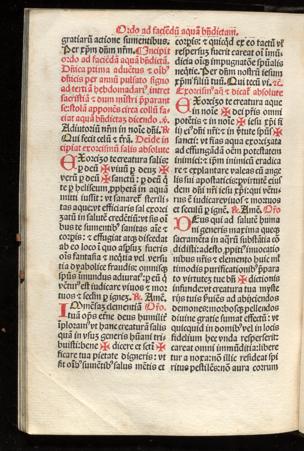 Ordo ad faciēdū aquā bn̄dictam.
gratiarū actione sumentibus.
Per xp̄m dn̄m nr̄m. Incipit
ordo ad faciēdā aquā bn̄dictā.
Dn̄ica prima aduētus ⁊ oīb⁹
dn̄icis per annū pulsato signo
ad tertiā hebdomadari⁹ intret
sacristiā ⁊ dum mīstri parant
se stola apponēs circa collū
ciat aquā bn̄dictaȝ dicendo .v.
Adiutoriū nr̄m in noīe dn̄i. R̄.
Qui fecit celū ⁊ terrā. Deīde in
cipiat exorcismū salis absolute
Exorcizo te creatura salis:
per deū ✠ viuū per deuȝ ✠
verū per deū ✠ sanctū: per deū q̄
te per heliseum prophetā in aquā
mitti iussit: vt sanaret̄ sterili-
tas aque: vt efficiaris sal exorci
zatū in salutē credētiū: vt sis oī
bus te sumentib⁹ sanitas aīe ⁊
corpis: ⁊ effugiat atqȝ discedat
ab eo loco quo aspsuȝ fueris
oīs fantasia ⁊ neq̄tia vel versu
tia dyabolice fraudis: omnisqȝ
spūs īmundus adiurat⁹. per eū q̄
vētur⁹ est iudicare viuos ⁊ mor
tuos ⁊ seclm̄ per ignē. R̄. Amē.
Immēsaȝ clementiā Oro.
tuā ops eterne deus humilit̄
īploram⁹ vt hanc creaturā salis
quā in vsuȝ generis hūani tri
buisti: bene ✠ dicere et scti ✠
ficare tua pietate digneris: vt
sit oīb⁹ sumētib⁹ salus mētis et
corpis: ⁊ quicqd ex eo tactū vl̄
respersuȝ fuerit careat oī īmū-
dicia oīqȝ impugnatōe spūalis
neq̄tie. Per dn̄m nostrū iesum
xpm̄ filiū tuū. Qui tecū vi. ⁊c̄.
Exorcism⁹ aq̄ ⁊ dicat̄ absolute
Exorcizo te creatura aque
in noīe ✠ dei pr̄is omni
potētis ⁊ in noīe ✠ iesu xpī fi
lij ei⁹ dn̄i nr̄i: ⁊ in v̄tute spūs ✠
sancti: vt fias aqua exorcizata
ad effugandā oēm potestatem
inimici: ⁊ ipm̄ inimicū eradica
re ⁊ explantare valeas cū ange
lis suis apostaticis: per virtutē eius
dem dn̄i nr̄i iesu xpī: qui vētu-
rus ē iudicare viuos ⁊ mortuos
et seculū per ignē. R̄. Amē. Oro
Deus qui ad salutē huma
ni generis maxima queqȝ
sacramēta in aquaȝ substātia cō
didisti: adesto ppiti⁹ inuocatiōi
bus nr̄is ⁊ elemento huic ml̄
timodis purificationib⁹ ppara
to virtutem tue bn̄ ✠ dictionis
infunde: vt creatura tua myste
rijs tuis fuiēs ad abijciendos
demones: morbosqȝ pellendos
diuine gratie sumat effectū: vt
quicquid in domib⁹ vel in locis
fidelium hec vnda resperserit:
careat omni immūdicia: libere
tur a noxa: nō illic resideat spi
ritus pestilēs: nō aura corrum